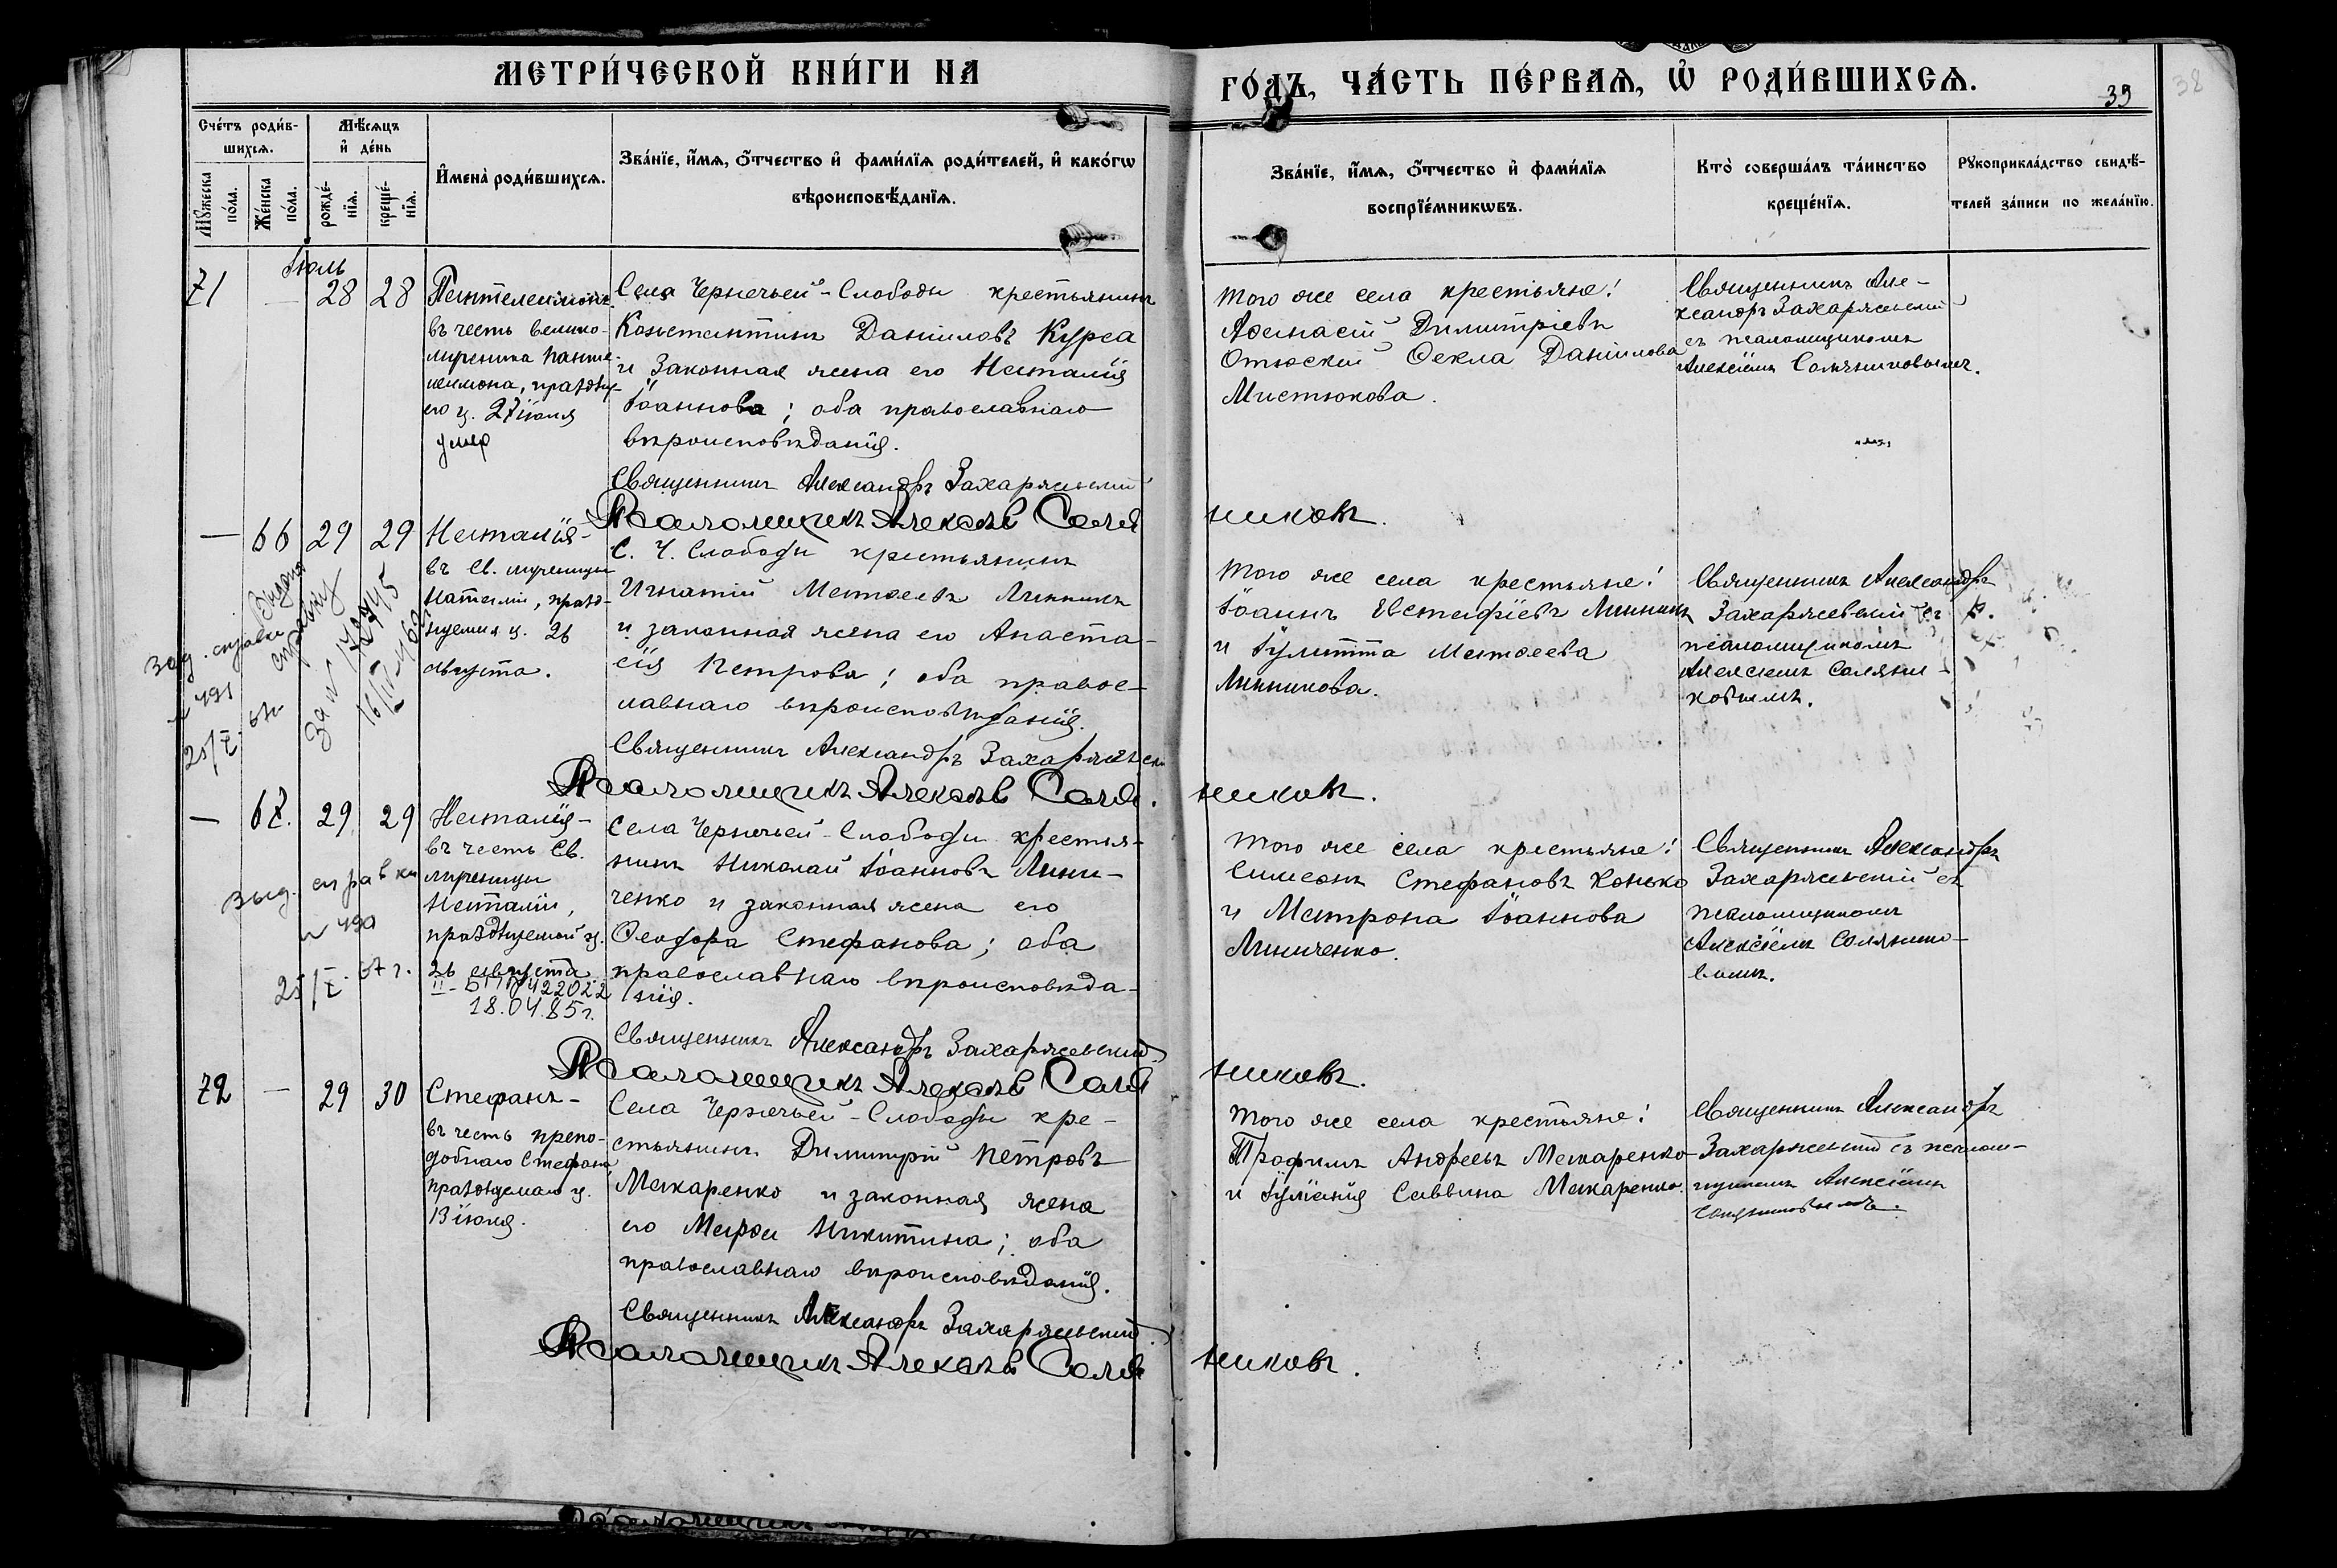 МЕТРИ́ЧЕСКОЙ КНИ́ГИ НА
ГО́ДЪ, ЧА́СТЬ ПЕ́РВАѦ, Ѡ҆ РОДИ́ВШИХСѦ.
39
38
Сче́тъ роди́в-
шихсѧ.
Мѣ́сѧцъ
и҆ де́нь
Мꙋ́жеска
по́ла.
Же́нска
по́ла.
рожде́-
нїѧ.
креще́-
нїѧ.
И҆мена̀ роди́вшихсѧ.
Зва́нїе, и҆́мѧ, ѻ҆́тчество и҆ фами́лїѧ роди́телей, и҆ како́гѡ
вѣроисповѣ́данїѧ.
Зва́нїе, и҆́мѧ, ѻ҆́тчество и҆ фами́лїѧ
воспрїе́мникѡвъ.
Кто̀ соверша́лъ та́инство
креще́нїѧ.
Рꙋкоприкла́дство свидѣ́-
телей за́писи по жела́нїю.
Іюль
71 — 28 28
Пантелеимонъ
въ честь велико-
мученика Панте-
леимона, праздну-
его ч. 27 іюля
умер
Села Чернечьей-Слободы крестьянинъ
Константинъ Даніиловъ Курса
и законная жена его Наталія
Іоаннова; оба православнаго
вѣроисповѣданія.
Священникъ Александръ Захаржевскій
Псаломщикъ Алексѣй Соля
никовъ.
Того же села крестьяне:
Аѳанасій Димитріевъ
Ѳекла Даніилова
Мистюкова.
Священникъ Але-
ксандръ Захаржевскій
съ псаломщикомъ
Алексіемъ Солянниковымъ.
— 66 29 29
Наталія-
въ св. мученицы
Наталіи, празд-
нуемыя ч. 26
августа.
С. Ч. Слободы крестьянинъ
Игнатій Матѳеевъ Линникъ
и законная жена его Анаста-
сія Петрова; оба правос-
лавнаго вѣроисповѣданія.
Священникъ Александръ Захаржевскій
Псаломщикъ Алексѣй Соля
никовъ.
Того же села крестьяне:
Іоаннъ Евстафіевъ Линникъ
и Іулитта Матѳеева
Линникова.
Священникъ Александръ
Захаржевскій съ
псаломщикомъ
Алексіемъ Соляни-
ковымъ.
выдана
справку
за N
16/IV-
справки
N 491
25/I. 67г
— 67. 29 29
Наталія-
въ честь Св.
мученицы
Наталіи,
празднуемой ч.
26 августа
18.04.85г.
Выд. справки
N 490
25/I. 67 г.
Села Чернечьей-Слободы крестья-
нинъ Николай Іоанновъ Лини-
ченко и законная жена его
Ѳеодора Стефанова; оба
православнаго вѣроисповѣда-
нія.
Священникъ Александръ Захаржевскій.
Псаломщикъ Алексѣй Соля
никовъ.
Того же села крестьяне:
Симеонъ Стефановъ Конько
и Матрона Іоаннова
Линиченко.
Священникъ Александръ
Захаржевскій съ
псаломщикомъ
Алексіемъ Солянико-
вымъ.
72 — 29 30
Стефанъ-
въ честь препо-
добнаго Стефана
празднуемаго ч.
13 іюля.
Села Чернечьей-Слободы кре-
стьянинъ Димитрій Петровъ
Макаренко и законная жена
его Марѳа Никитина; оба
православнаго вѣроисповѣданія.
Священникъ Александръ Захаржевскій.
Псаломщикъ Алексѣй Соля
никовъ.
Того же села крестьяне:
Трофимъ Андреевъ Макаренко
и Іуліанія Саввина Макаренко.
Священникъ Александръ
Захаржевскій съ псалом-
щикомъ Алексіемъ
Солянниковымъ.